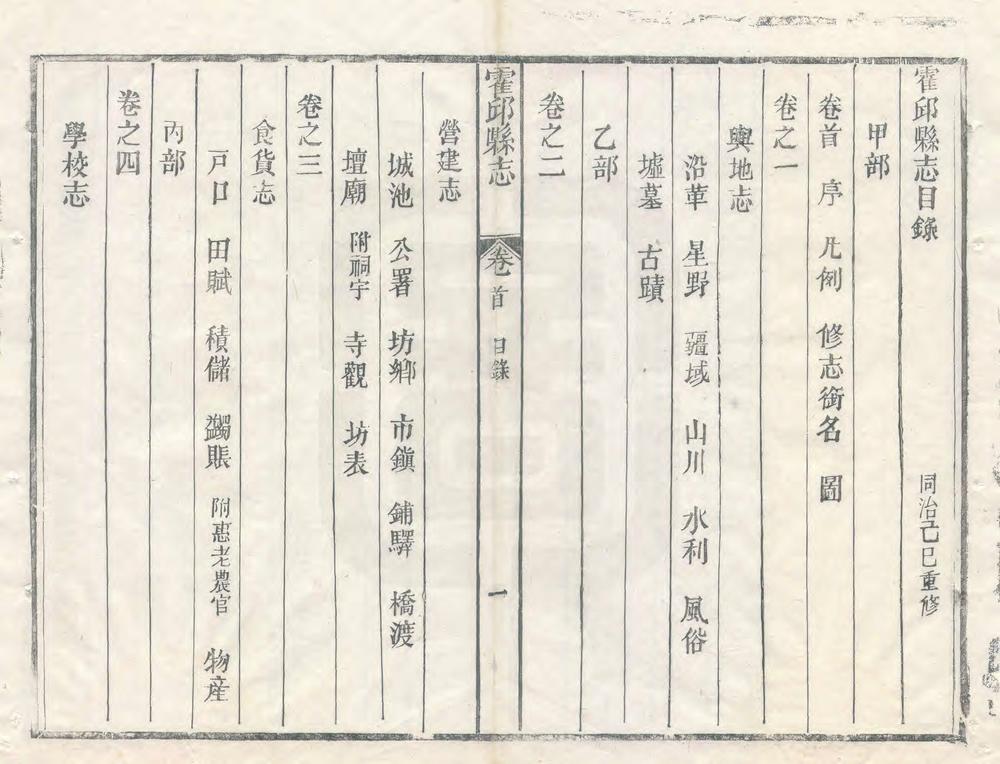 霍邱縣志目錄 同治己巳重修
甲部
卷首 序 凡例 修志銜名 圖
卷之一
輿地志
沿革 星野 疆域 山川 水利 風俗
墟墓 古蹟
乙部
卷之二
霍邱縣志 卷首 目錄 一
營建志
城池 公署 坊鄉 市鎮 鋪驛 橋渡
壇廟 附祠宇 寺觀 坊表
卷之三
食貨志
戸口 田賦 積儲 蠲賑 附惠老農官 物産
丙部
卷之四
學校志